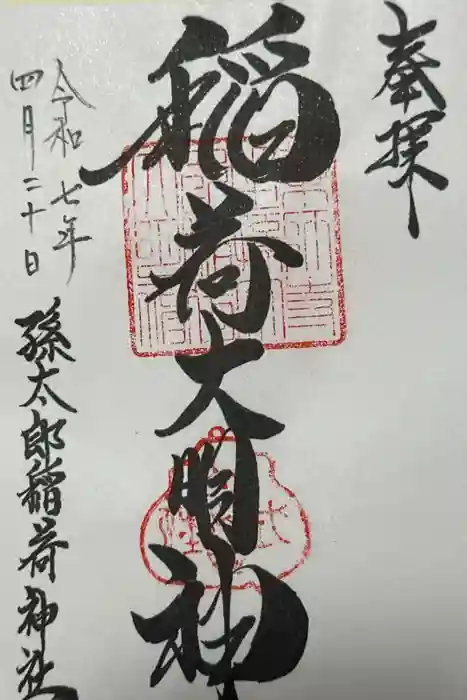 奉拝
稲荷大明神
令和七年
四月二十日
孫太郎稲荷神社